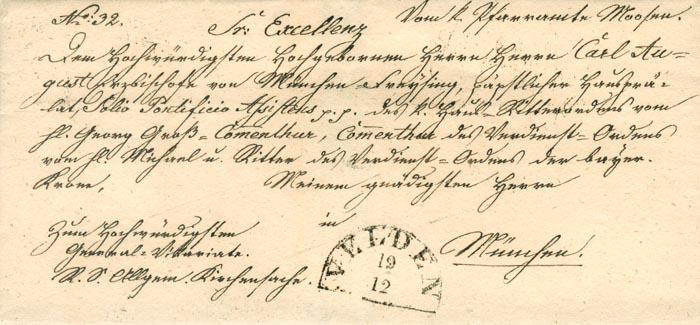 No: 32. Vom k. Pfarramte Moosen.
Sr. Excellenz
Dem Hochwürdigsten Hochgebornen Herrn Herrn Carl Au-
gust Erzbischofe von München-Freysing, päpstlicher Hausprä-
lat, Solio Pontificio Assistens p. p. des k. Haus-Ritterordens vom
hl. Georg Groß-Comenthur, Comenthur des Verdienst-Ordens
vom hl. Michael u. Ritter des Verdienst-Ordens der bayer.
Krone, Meinem gnädigsten Herrn
Zum Hochwürdigsten in
General-Vikariate.
München!
R. S. Allgem. Kirchensache.
VELDEN
19
12